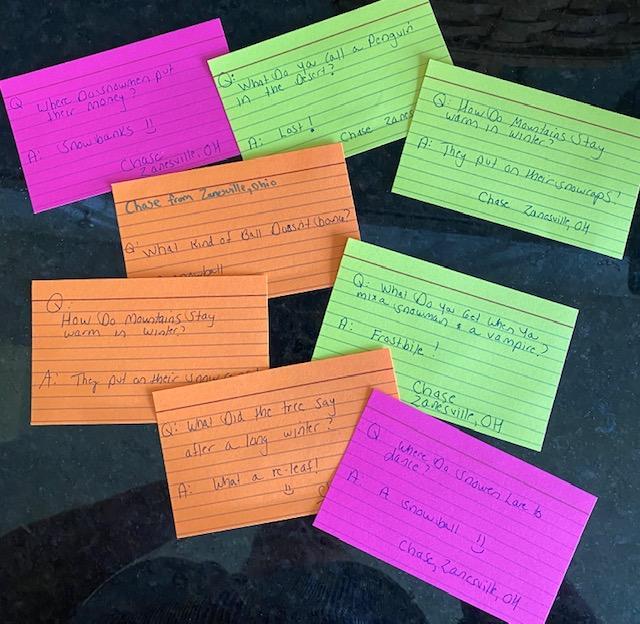 Q Where Do snowmen put
their money?
A: Snowbanks
Chase
Zanesville, OH
Q: What Do you Call a Penguin
in the Desert?
A: Lost!
Chase Zanes
Q: How Do Mountains Stay
warm in winter?
A: They put on their snowcaps!
Chase Zanesville, OH
Chase from Zanesville, Ohio
Q: What Kind of Ball Doesn't bounce?
snowball
Q:
How Do Mountains Stay
warm in winter?
A: They put on their snow
Q: What Do you Get when ya
mix a snowman & a vampire?
A: Frostbite!
Chase
Zanesville, OH
Q: What Did the tree say
after a long winter?
A: What a re-leaf!
Q Where Do snowen Love to
dance?
A. A snowball
Chase, Zanesville, OH